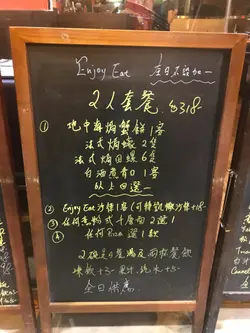 Enjoy Eat 生日不設加一
2人套餐 $318-
① 地中海焗蟹餅 1客
法式焗蠔 2隻
法式焗田螺 6隻
白酒煮青口 1客
以上四選一
② Enjoy Eat 沙律1客 (可轉凱撒沙律+18-
③ 任何意粉或千層包 2選1
④ 任何Pizza 選1款
2碗是日餐湯及兩杯餐飲
凍飲+3- 果汁, 汽水+5-
全日供應